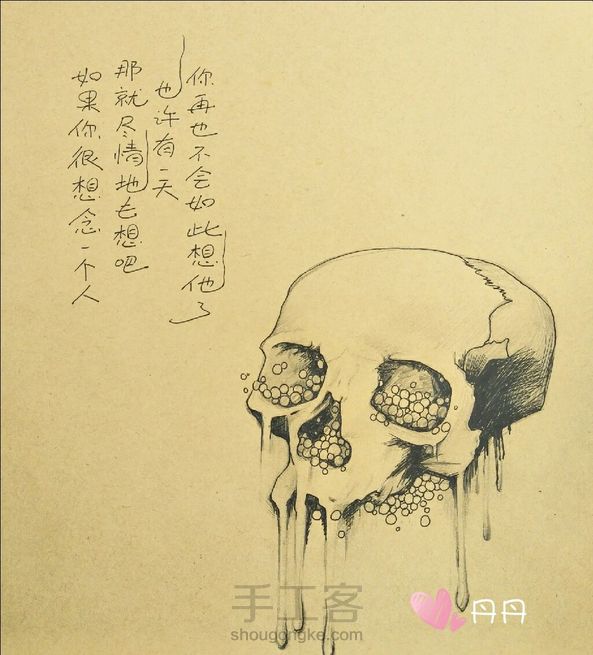 如果你很想念一个人
那就尽情地去想吧
也许有一天
你再也不会如此想他了
手工客
shougongke.com
丹丹